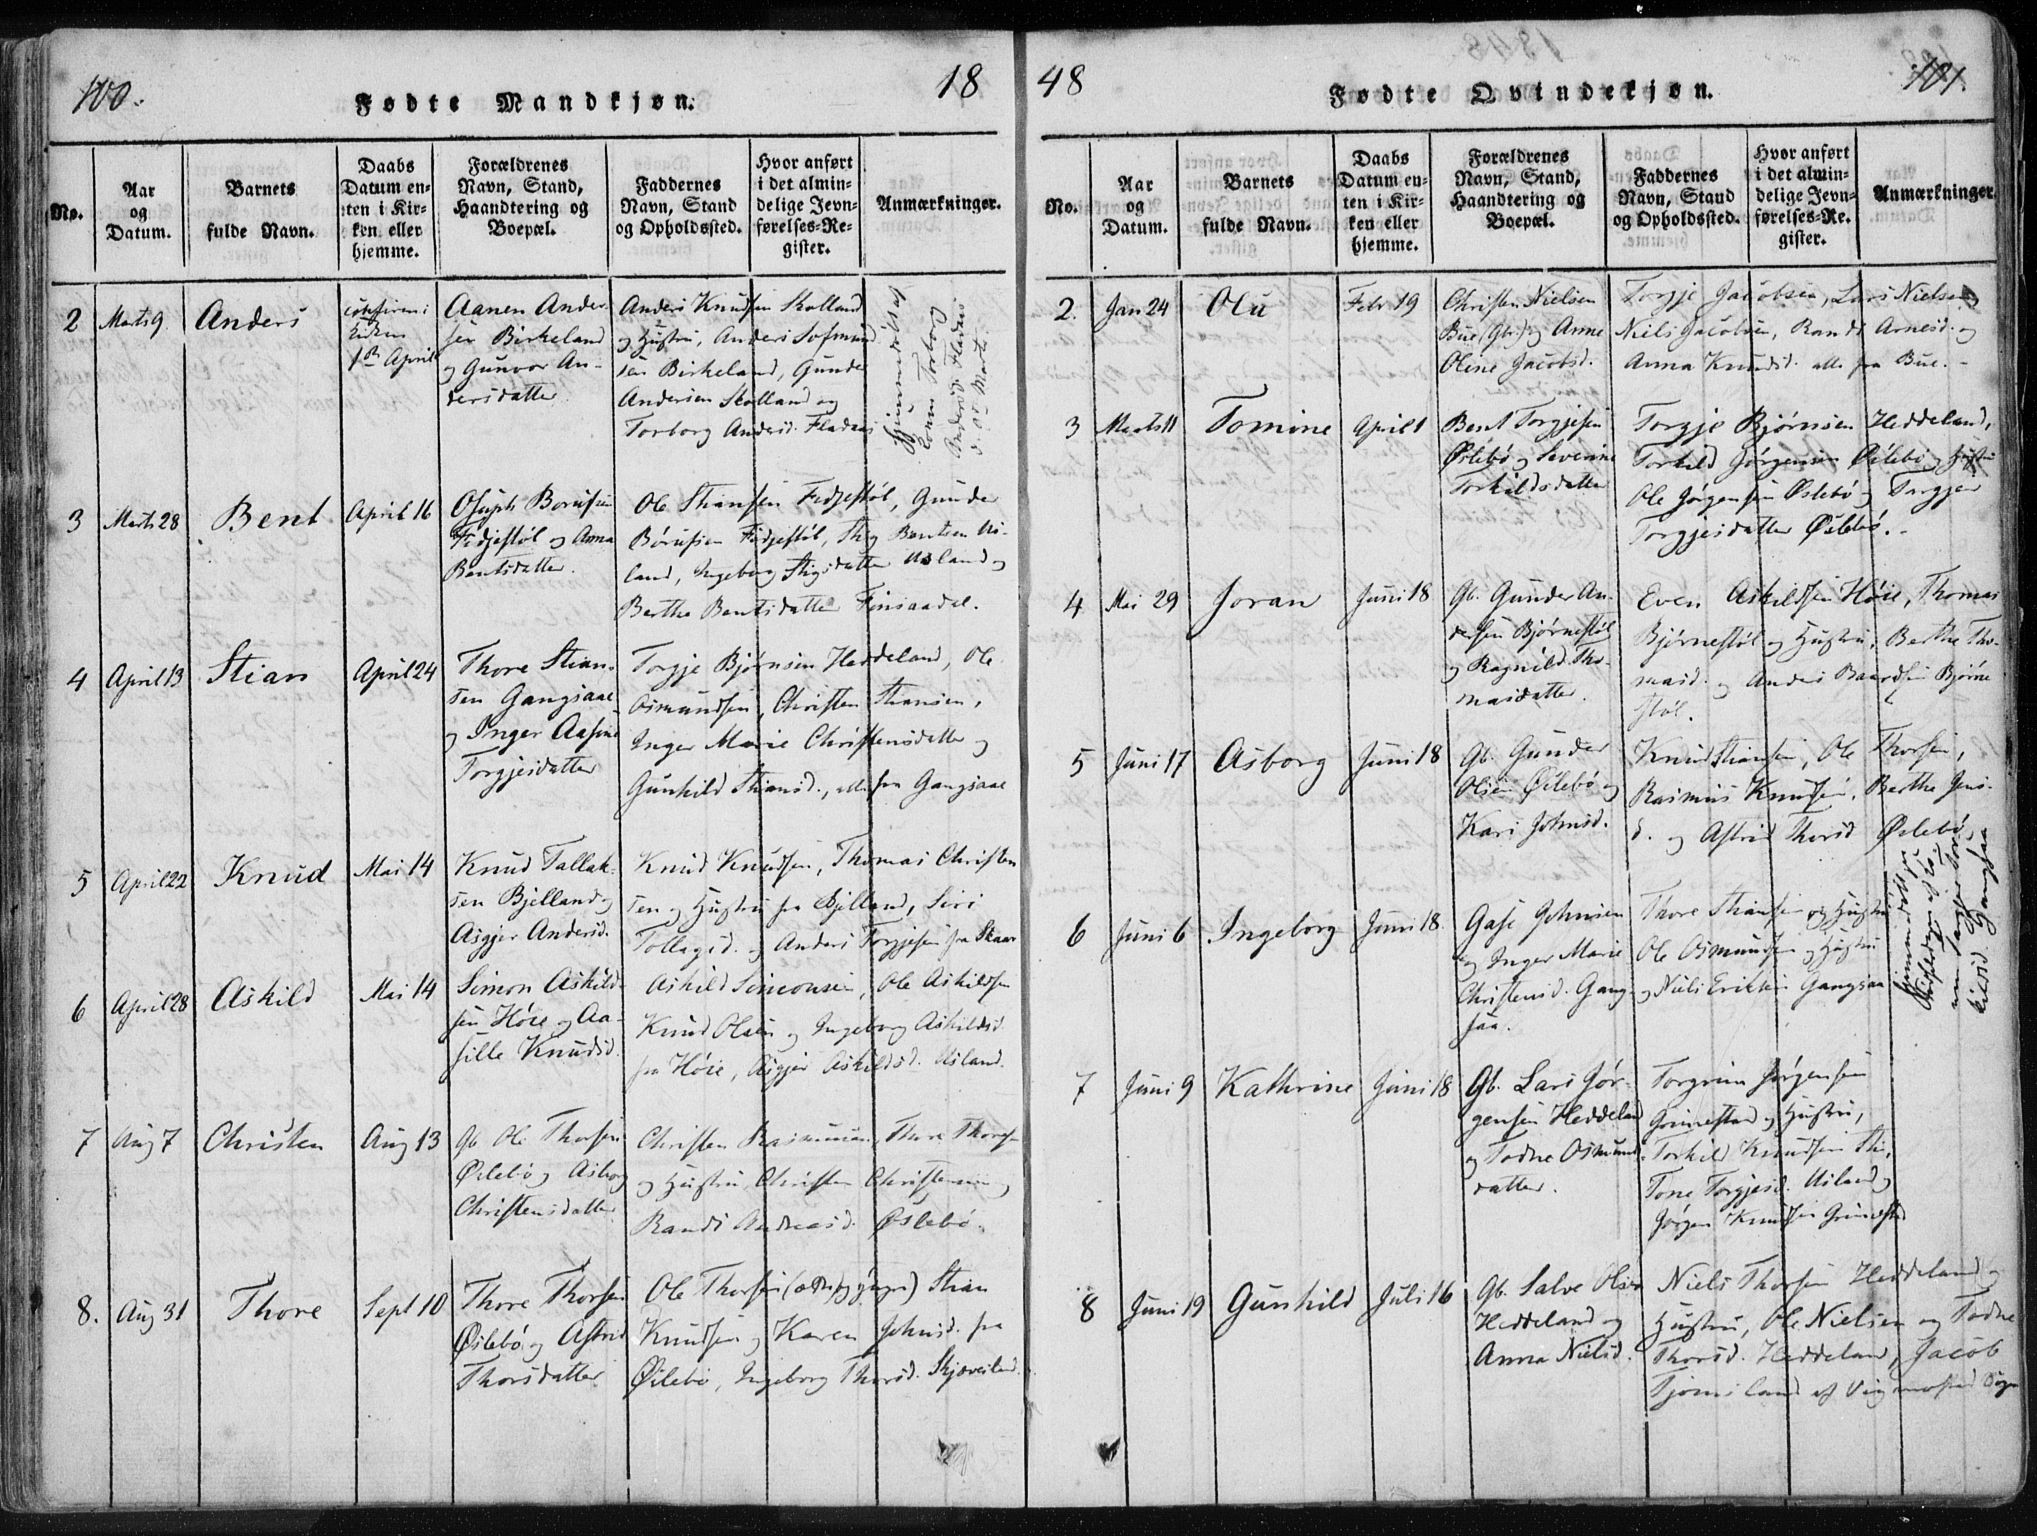 100.
18
Fødte Mandkjøn.
No.
Aar
og
Datum.
Barnets
fulde Navn.
Daabs
Datum en-
ten i Kir-
ken eller
hjemme.
Forældrenes
Navn, Stand,
Haandtering og
Boepæl.
Faddernes
Navn, Stand
og Opholdssted.
Hvor anført
i det almin-
delige Jevn-
førelses-Re-
gister.
Anmærkninger.
2
Marts 9
Anders
i
Kirken
1ste April
Aanen Ander-
sen Birkeland
og Gunvor An-
dersdatter
Anders Knudsen Skolland
og Hustru, Anders
sen Birkeland, Gunder
Andersen Skolland og
Torborg Andersd. Fladaas
Hjemmedøbt af
Torborg
Andersd. Fladaas
d. Marts.
3
Marts 28
Bent
April 16
Osuph Børufsen
Fidjestøl og Anna
Bentsdatter.
Ole Stiansen Fidjestøl, Gunder
Børufsen Fidjestøl, Stig Bentsen As-
land, Ingeborg Stigsdatter Asland og
Berthe Bentsdatter Finsaadal.
4
April 13
Stian
April 24
Thore Stian-
sen Gangsaae
og Inger Aasine
Torgjesdatter
Torgje Bjørnsen Heddeland, Ole
Osmundsen, Christen Stiansen,
Inger Marie Christensdatter og
Gunhild Stiansd., alle fra Gangsaae
5
April 22
Knud
Mai 14
Knud Tallak-
sen Bjelland og
Asgjer Andersd.
Knud Knudsen, Thomas Christen
sen og Hustru fra Bjelland, Siri
Tollagsd. og Anders Torgjesen fra Skaar
6
April 28
Askild
Mai 14
Simon Askild-
sen Høie og Aa-
sille Knudsd.
Askild Simonsen, Ole Askildsen
Knud Olsen og Ingeborg Askildsd.
fra Høie, Asgjer Askildsd. Usland.
7
Aug 7
Christen
Aug 13
Gb. Ole Thorsen
Øslebø og Asborg
Christensdatter
Christen Rasmussen, Thore Thorsen
og Hustru, Christen Christensen og
Randi Andreasd. Øslebø.
8.
Aug 31
Thore
Sept 10
Thore Thorsen
Øslebø og Astrid
Thorsdatter
Ole Thorsen (ældre og yngre) Stian
Knudsen og Karen Johnsd. fra
Øslebø, Ingeborg Thorsd. Skjæveland.
48
101.
Fødte Qvindekjøn.
No.
Aar
og
Datum.
Barnets
fulde Navn.
Daabs
Datum en-
ten i Kir-
ken eller
hjemme.
Forældrenes
Navn, Stand,
Haandtering og
Boepæl.
Faddernes
Navn, Stand
og Opholdssted.
Hvor anført
i det almin-
delige Jevn-
førelses-Re-
gister.
Anmærkninger.
2.
Jan 24
Olu
Febr 19
Christen Nielsen
Bue (Gb.) og Anne
Oline Jacobsd.
Torgje Jacobsen, Lars Nielsen,
Niels Jacobsen, Randi Arnesd. og
Anna Knudsd. alle fra Bue.
3
Marts 11
Tomine
April 1
Bent Torgjesen
Øslebø og Severine
Torkildsdatter
Torgje Bjørnsen Heddeland,
Torkild Jørgensen Øslebø og Hustru
Ole Jørgensen Øslebø og Torgjer
Torgjesdatter Øslebø.
4
Mai 29
Joran
Juni 18
Gb. Gunder An-
dersen Bjørnestøl
og Ragnild Tho-
masdatter.
Even Askildsen Høie, Thomas
Bjørnestøl og Hustru, Berthe Tho-
masd. og Anders Baardsen Bjørne
støl.
5
Juni 17
Asborg
Juni 18
Gb. Gunder
Olsen Øslebø og
Kari Johnsd.
Knud Stiansen, Ole Thorsen,
Rasmus Knudsen, Berthe Jens-
d. og Astrid Thorsd Øslebø
6
Juni 6
Ingeborg
Juni 18.
Gase Johnsen
og Inger Marie
Christensd. Gang-
saa.
Thore Stiansen og Hustru
Ole Osmundsen og Hustru
og Niels Eriksen Gangsaa
Hjemmedøbt
af
Inger Tor-
kildsd. Gangsaa
7
Juni 9
Kathrine
Juni 18
Gb. Lars Jør-
gensen Heddeland
og Todne Osmund-
datter.
Torgrim Jørgensen
Grimestad og Hustru,
Torkild Knudsen
Tone Torgjesd. Usland og
Jørgen Knudsen Grimestad
8
Juni 19
Gunhild
Juli 16
Gb. Salve Olsen
Heddeland og
Anna Nielsd.
Niels Thorsen Heddeland og
Hustru, Ole Nielsen og Todne
Thorsd. Heddeland, Jacob
Tjomsland af Vigmostad Sogn